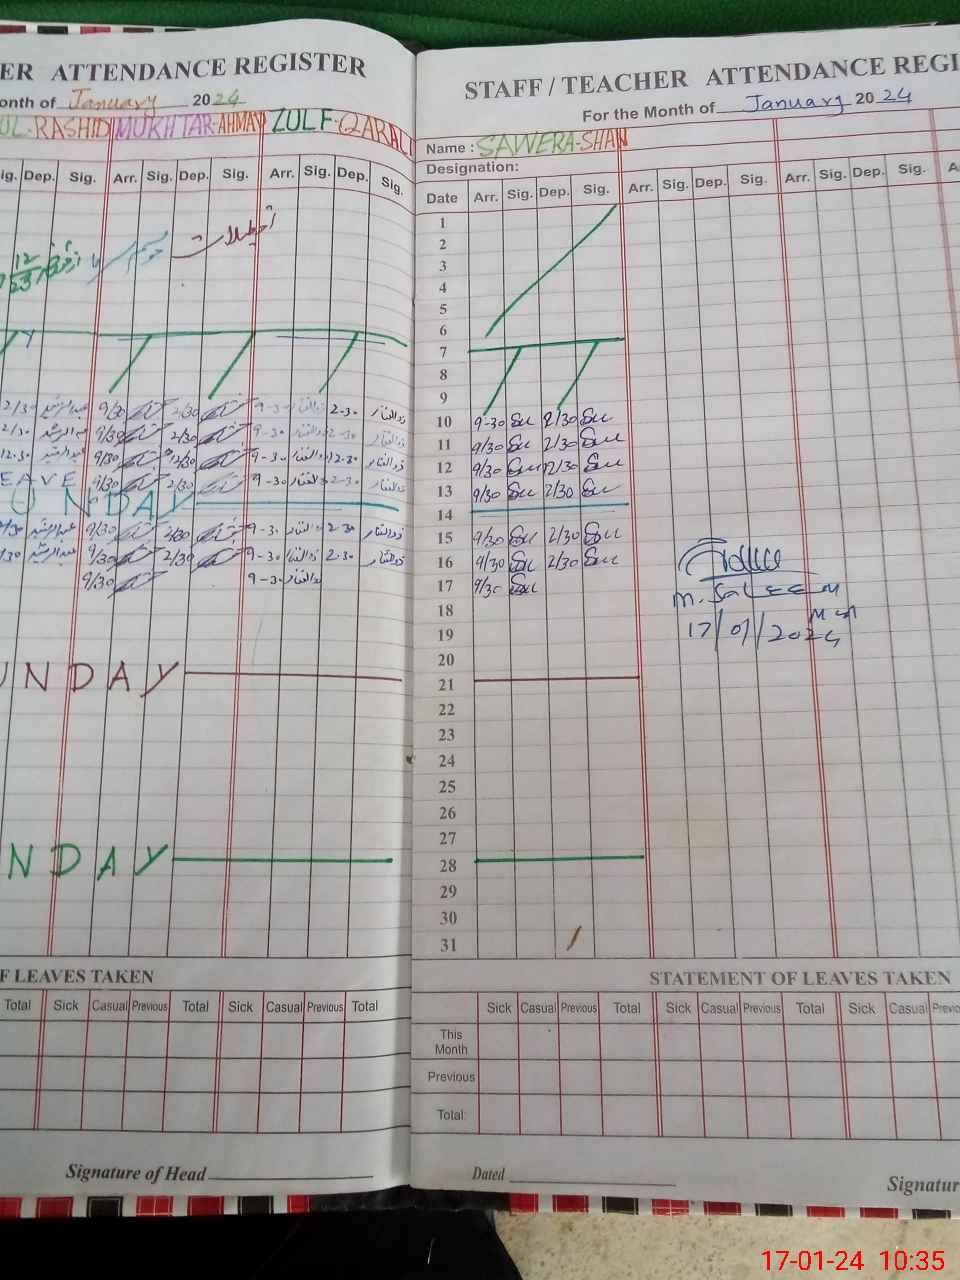 ER ATTENDANCE REGISTER
onth of January 2024
UL-RASHID MUKHTAR-AHMAD ZULF-QARALI
ig. Dep. Sig. Arr. Sig. Dep. Sig. Arr. Sig. Dep. Sig.
12/23
2/30 عبدالرشید 9/30 2/30 9-30 ذوالفقار 2-30 ذوالفقار
2/30 عبدالرشید 9/30 2/30 9-30 ذوالفقار 2-30 ذوالفقار
12.30 عبدالرشید 9/30 12/30 9-30 ذوالفقار 12-30 ذوالفقار
EAVE 9/30 2/30 9-30 ذوالفقار 2-30 ذوالفقار
UNDAY
2/30 عبدالرشید 9/30 2/30 9-30 ذوالفقار 2-30 ذوالفقار
/30 عبدالرشید 9/30 2/30 9-30 ذوالفقار 2-30 ذوالفقار
9/30 9-30 ذوالفقار
UNDAY
NDAY
F LEAVES TAKEN
Total Sick Casual Previous Total Sick Casual Previous Total
Signature of Head
STAFF / TEACHER ATTENDANCE REGI
For the Month of January 2024
Name : SAWERA-SHAH
Designation:
Date Arr. Sig. Dep. Sig. Arr. Sig. Dep. Sig. Arr. Sig. Dep. Sig. A
1
2
3
4
5
6
7
8
9
10 9-30 2/30
11 9/30 2/30
12 9/30 12/30
13 9/30 2/30
14
15 9/30 2/30
16 9/30 2/30
17 9/30
18
19
20
21
22
23
24
25
26
27
28
29
30
31
M. SALEEM
17/01/2024
STATEMENT OF LEAVES TAKEN
Sick Casual Previous Total Sick Casual Previous Total Sick Casual Previo
This Month
Previous
Total:
Dated
Signatur
17-01-24 10:35